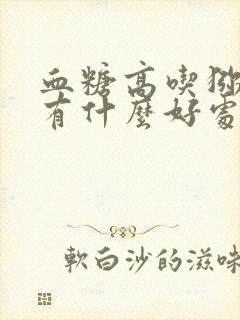 血糖高喫猕
有什麼好處
軟白沙的滋味